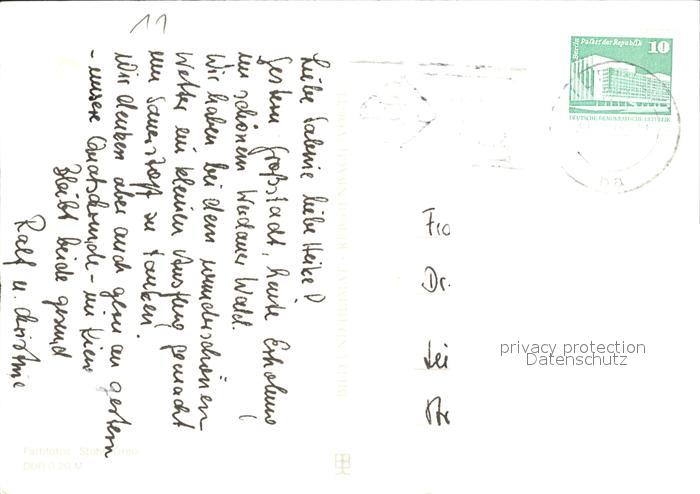 11
Liebe Sabine liebe Heike!
Gestern Großstadt, heute Erholung
im schönen Werdauer Wald.
Wir haben bei dem wunderschönen
Wetter ein kleinen Ausflug gemacht
um Sauerstoff zu tanken.
Wir denken aber auch gern an gestern
- unsere Quatschrunde - im Kino
Bleibt beide gesund
Ralf u. Christine
Farbfotos:
DDR 0,20 M
Berlin Palast der Republik
10
DEUTSCHE DEMOKRATISCHE REPUBLIK
Fra
Dr.
Lei
Str
privacy protection
Datenschutz